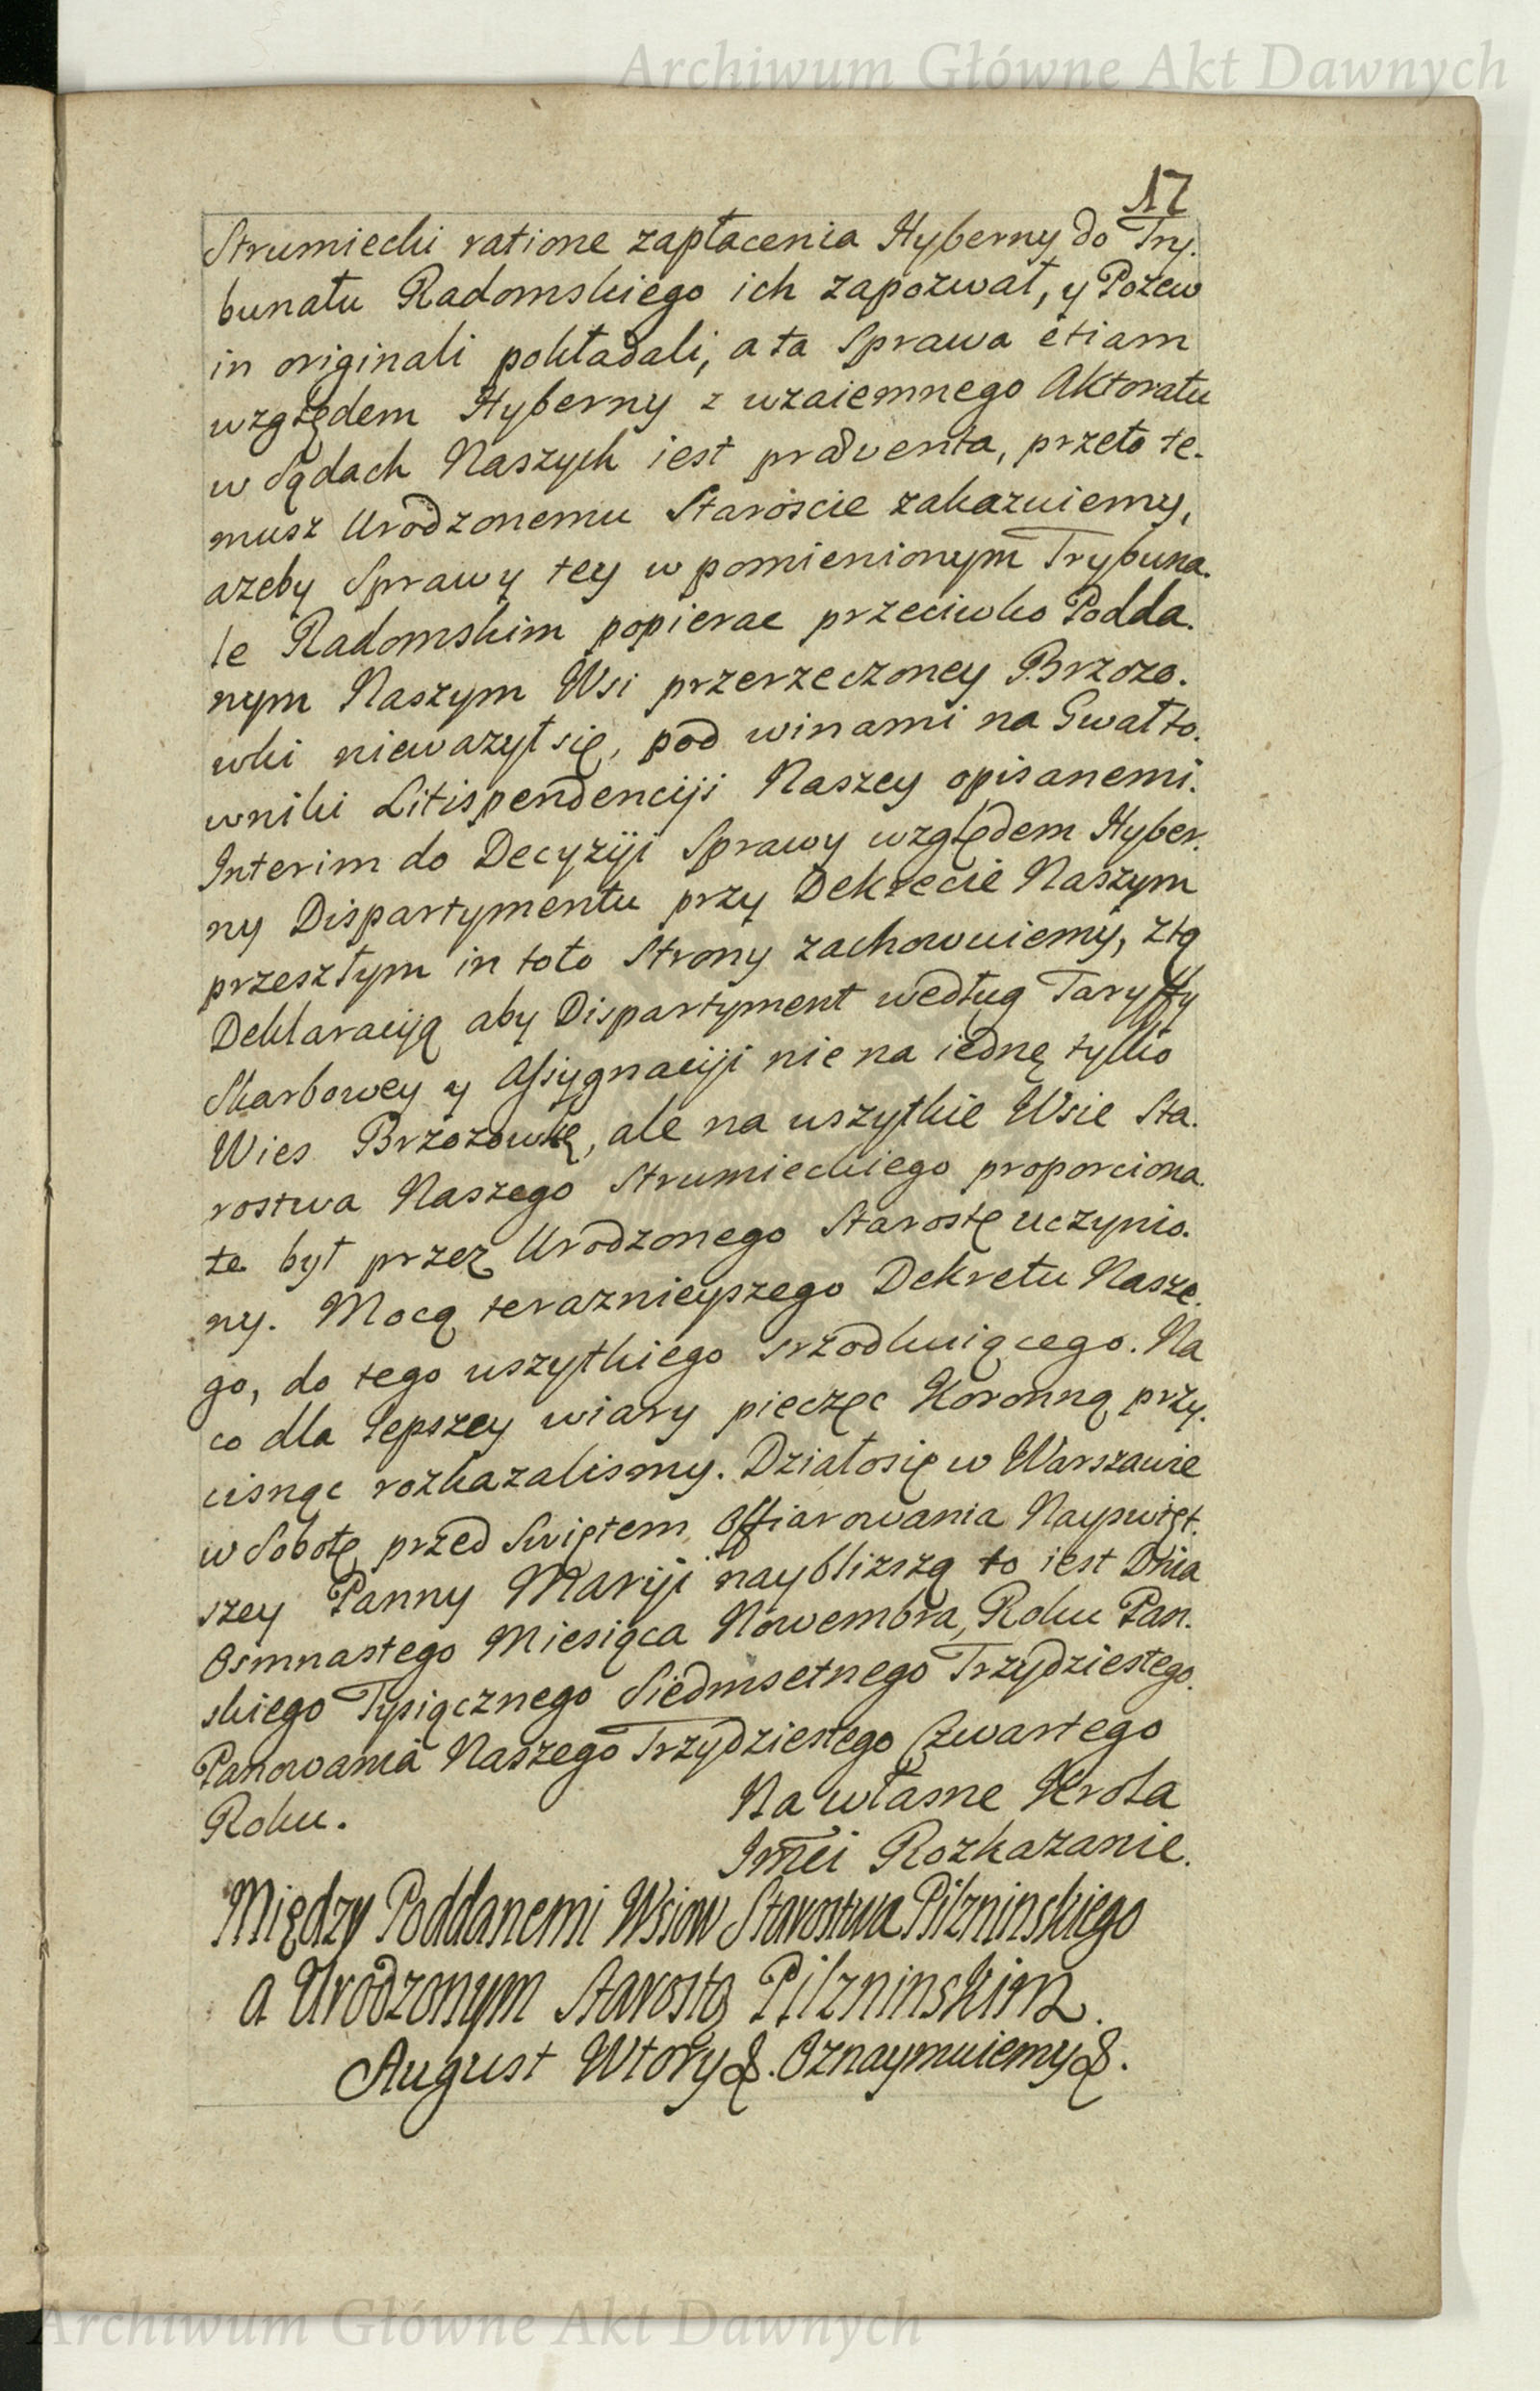 Archiwum Główne Akt Dawnych
17
Strumiecki ratione zapłacenia Hyberny do Try.
bunału Radomskiego ich zapozwał, y Pozew
in originali pokładali, a ta Sprawa etiam
względem Hyberny z wzaiemnego Aktoratu
w Sądach Naszych iest præventa, przeto te.
musz Urodzonemu Staroscie zakazuiemy,
azeby Sprawy tey w pomienionym Trybuna.
le Radomskim popierac przeciwko Podda.
nym Naszym Wsi przerzeczoney Brzozo.
wki niewazył się, pod winami na Gwałto.
wniki Litispendenciji Naszey opisanemi.
Interim do Decyziji Sprawy względem Hyber.
ny Dispartymentu przy Dekrecie Naszym
przeszłym in toto Strony zachowuiemy, z tą
Deklaracyą aby Dispartyment według Taryffy
Skarbowey y Assygnaciji nie na iednę tylko
Wies Brzozowkę, ale na wszytkie Wsie Sta.
rostwa Naszego Strumieckiego proporciona.
te był przez Urodzonego Starostę uczynio.
ny. Mocą teraznieyszego Dekretu Nasze.
go, do tego wszytkiego srzodkuiącego. Na
co dla lepszey wiary pieczęc Koronną przy.
cisnąc rozkazalismy. Działo się w Warszawie
w Sobotę przed Swiętem Offiarowania Nayswięt.
szey Panny Mariji naybliższą to iest Dnia
Osmnastego Miesiąca Nowembra, Roku Pan.
skiego Tysiącznego Siedmsetnego Trzydziestego.
Panowania Naszego Trzydziestego Czwartego
Roku.
Na własne Krola
Imci Rozkazanie.
Między Poddanemi Wsiow Starostwa Pilzninskiego
a Urodzonym Starostą Pilzninskim.
August Wtory &. Oznaymuiemy &.
Archiwum Główne Akt Dawnych